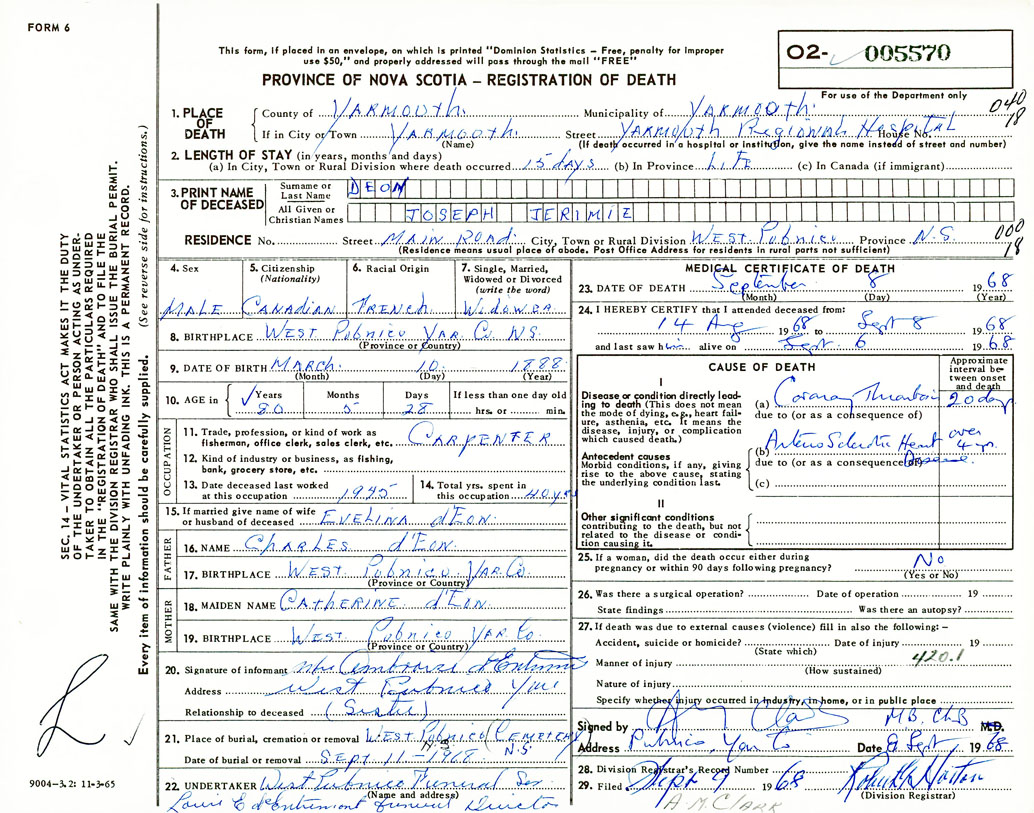 FORM 6
This form, if placed in an envelope, on which is printed "Dominion Statistics – Free, penalty for improper
use $50," and properly addressed will pass through the mail "FREE"
PROVINCE OF NOVA SCOTIA – REGISTRATION OF DEATH
02- 005570
For use of the Department only
040
18
SEC. 14 – VITAL STATISTICS ACT MAKES IT THE DUTY
OF THE UNDERTAKER OR PERSON ACTING AS UNDER-
TAKER TO OBTAIN ALL THE PARTICULARS REQUIRED
IN THE "REGISTRATION OF DEATH" AND TO FILE THE
SAME WITH THE DIVISION REGISTRAR WHO SHALL ISSUE THE BURIAL PERMIT.
WRITE PLAINLY WITH UNFADING INK. THIS IS A PERMANENT RECORD.
Every item of information should be carefully supplied. (See reverse side for instructions.)
1. PLACE OF DEATH
County of YARMOUTH. Municipality of YARMOUTH.
If in City or Town YARMOUTH. Street YARMOUTH Regional Hospital House No.
(Name) (If death occurred in a hospital or institution, give the name instead of street and number)
2. LENGTH OF STAY (in years, months and days)
(a) In City, Town or Rural Division where death occurred 15 days (b) In Province LIFE (c) In Canada (if immigrant)
3. PRINT NAME OF DECEASED
Surname or Last Name DEON
All Given or Christian Names JOSEPH JERIMIE
RESIDENCE No. Street MAIN ROAD. City, Town or Rural Division WEST Pubnico Province N.S.
(Residence means usual place of abode. Post Office Address for residents in rural parts not sufficient)
000
18
4. Sex 5. Citizenship (Nationality) 6. Racial Origin 7. Single, Married, Widowed or Divorced (write the word)
MALE Canadian French Widower
8. BIRTHPLACE WEST Pubnico YAR. Co. NS.
(Province or Country)
9. DATE OF BIRTH MARCH 10 1888
(Month) (Day) (Year)
10. AGE in Years Months Days If less than one day old
80 5 28 hrs. or min.
OCCUPATION
11. Trade, profession, or kind of work as
fisherman, office clerk, sales clerk, etc. CARPENTER
12. Kind of industry or business, as fishing,
bank, grocery store, etc.
13. Date deceased last worked
at this occupation 1945
14. Total yrs. spent in
this occupation 40 yrs
15. If married give name of wife
or husband of deceased EVELINA d'EON.
FATHER
16. NAME CHARLES d'EON.
17. BIRTHPLACE WEST. Pubnico YAR. Co.
(Province or Country)
MOTHER
18. MAIDEN NAME CATHERINE d'EON.
19. BIRTHPLACE WEST Pubnico YAR Co.
(Province or Country)
20. Signature of informant Mrs Ambroise d'Entremont
Address West Pubnico Yar.
Relationship to deceased (Sister)
21. Place of burial, cremation or removal WEST Pubnico (CEMETERY)
N.S.
Date of burial or removal SEPT. 11 – 1968
22. UNDERTAKER West Pubnico Funeral Ser
(Name and address)
Louis E d'Entremont Funeral Director
9004–3.2: 11-3-65
MEDICAL CERTIFICATE OF DEATH
23. DATE OF DEATH September 8 1968
(Month) (Day) (Year)
24. I HEREBY CERTIFY that I attended deceased from:
14 Aug 1968 to Sept 8 1968
and last saw him alive on Sept 6 1968
CAUSE OF DEATH
Approximate interval between onset and death
I
Disease or condition directly lead-
ing to death (This does not mean
the mode of dying, e.g., heart fail-
ure, asthenia, etc. It means the
disease, injury, or complication
which caused death.)
(a) Coronary Thrombosis 20 days
due to (or as a consequence of)
Antecedent causes
Morbid conditions, if any, giving
rise to the above cause, stating
the underlying condition last.
(b) Arterio Sclerotic Heart Disease over 4 yr.
due to (or as a consequence of)
(c)
II
Other significant conditions
contributing to the death, but not
related to the disease or condi-
tion causing it.
25. If a woman, did the death occur either during
pregnancy or within 90 days following pregnancy? No
(Yes or No)
26. Was there a surgical operation? Date of operation 19
State findings Was there an autopsy?
27. If death was due to external causes (violence) fill in also the following: –
Accident, suicide or homicide? Date of injury 19
(State which)
Manner of injury 420.1
(How sustained)
Nature of injury
Specify whether injury occurred in industry, in home, or in public place
Signed by Clark M.B. Ch.B M.D.
Address Pubnico, Yar Co Date 9 Sept 1968
28. Division Registrar's Record Number
29. Filed Sept 9 1968 Robert Horton
(Division Registrar)
A.M. CLARK